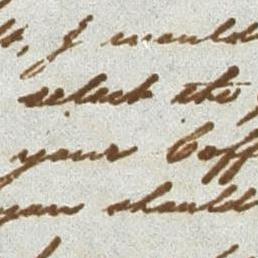 , I would
select the
your Coff
you should